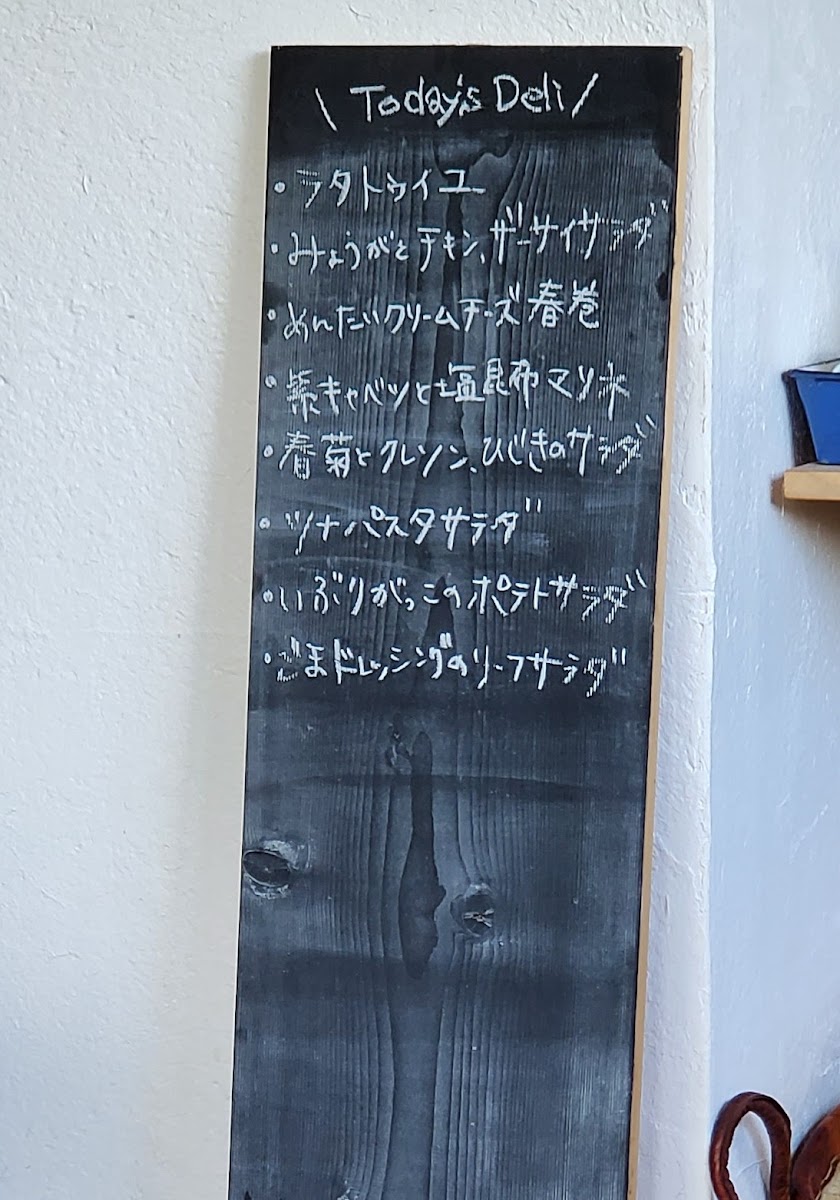 \ Today's Deli /
・ラタトゥイユ
・みょうがとチキン、ザーサイサラダ
・めんたいクリームチーズ春巻
・紫キャベツと塩昆布マリネ
・春菊とクレソン、ひじきのサラダ
・ツナパスタサラダ
・いぶりがっこのポテトサラダ
・ごまドレッシングのリーフサラダ